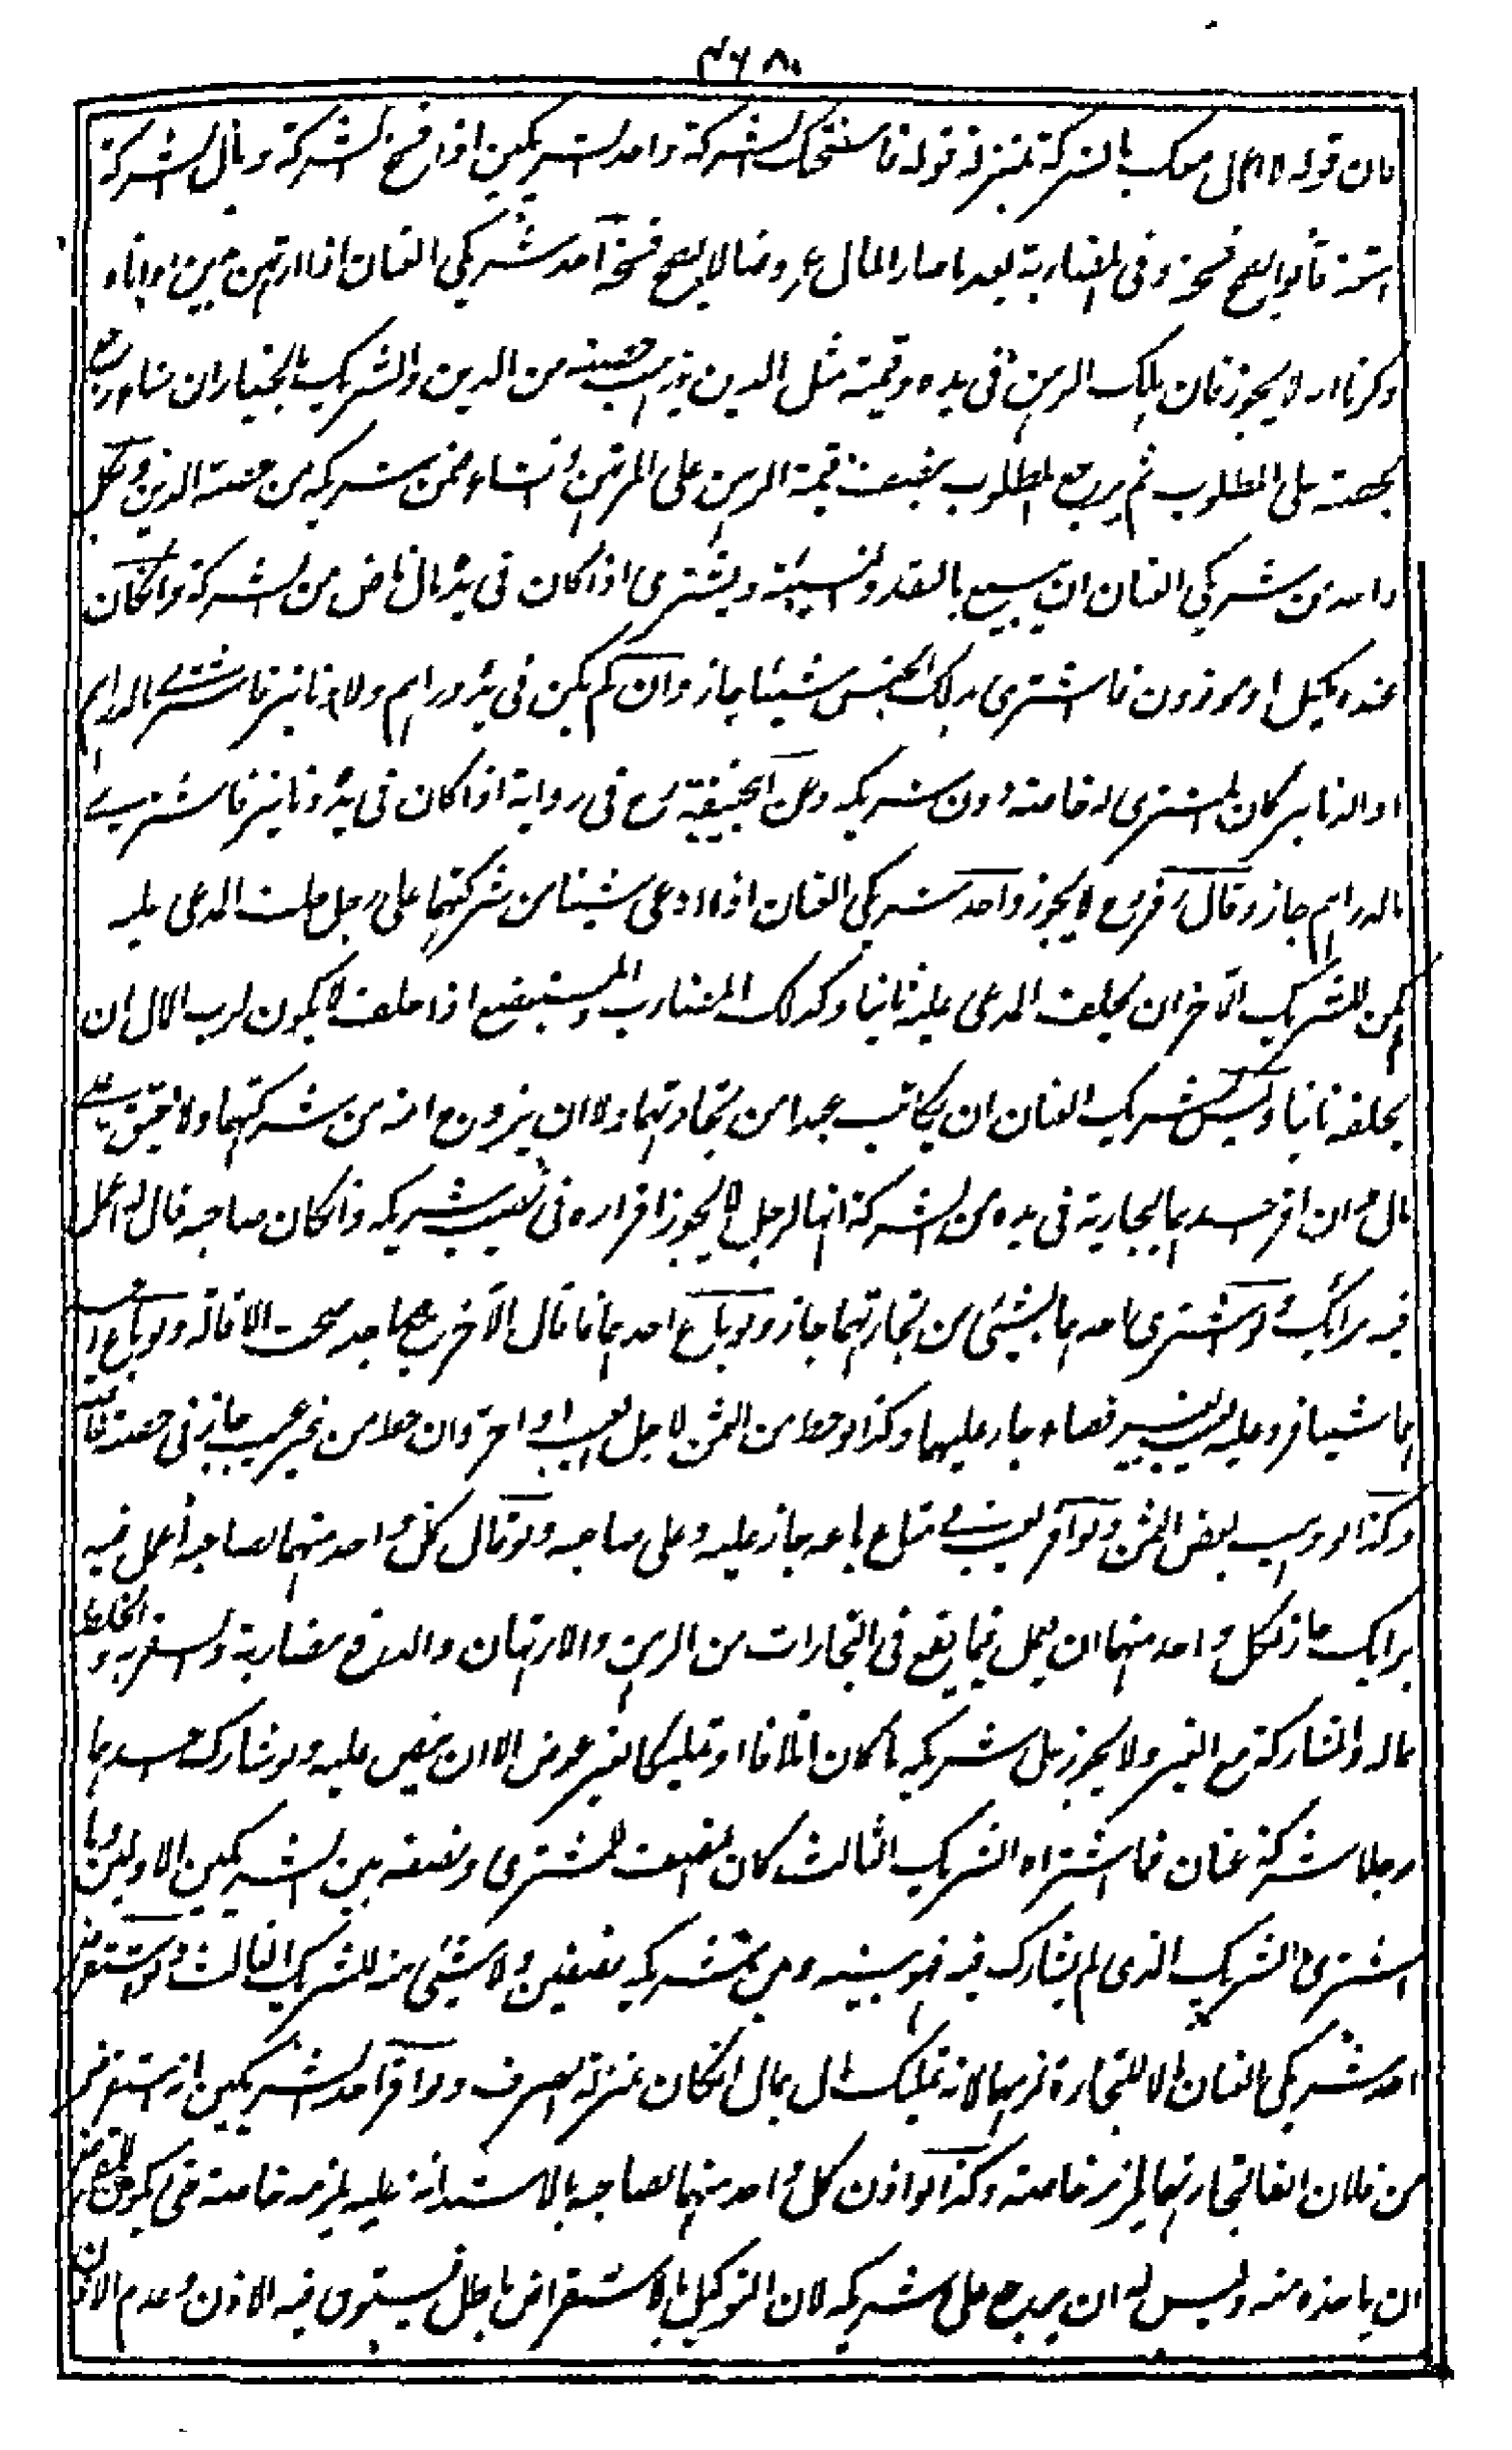 ۴۶۸
فان قوله لا اعمل معك بالشركة بمنزلة قوله فاسختك الشركة واحد الشريكين اذا فسخ الشركة ومال الشركة
امتعة قالوا يصح فسخه وفى المضاربة بعد ما صار المال عروضا لا يصح فسخه احد شريكى العنان اذا ارتهن بدين
ذكرنا انه لا يجوز فان هلك الرهن فى يده وقيمته مثل الدين يذهب حصته من الدين والشريك بالخيار ان شاء رجع
بحصته على المطلوب ثم يرجع المطلوب بنصف قيمة الرهن على المرتهن وان شاء ضمن شريكه من حصته الدين ولكل
واحد من شريكى العنان ان يبيع بالنقد والنسيئة ويشترى اذا كان فى يده مال ناض من الشركة وان كان
عنده مكيل او موزون فاشترى بذلك الجنس شيئا جاز وان لم يكن فى يده دراهم ولا دنانير فاشترى بالدراهم
او الدنانير كان المشترى له خاصة دون شريكه وعن ابيحنيفة رح فى رواية اذا كان فى يده دنانير فاشترى
بالدراهم جاز وقال زفر رح لا يجوز واحد شريكى العنان اذا ادعى شيئا من شركتهما على رجل حلف المدعى عليه
لم يكن للشريك الآخر ان يحلف المدعى عليه ثانيا وكذلك المضارب والمستبضع اذا حلف لا يكون لرب المال ان
يحلفه ثانيا وليس لشريك العنان ان يكاتب عبدا من تجارتهما ولا ان يزوج امة من شركتهما ولا يعتق على
مال وان اقر احدهما بجارية فى يده من الشركة انها لرجل لا يجوز اقراره فى نصيب شريكه وان كان صاحبه قال له اعمل
فيه برأيك ولو اشترى احدهما شيئا من تجارتهما جاز ولو باع احدهما فاقال الآخر مع صاحبه صحت الاقالة ولو باع
شيئا فرد عليه بعيب بغير قضاء جاز عليهما وكذا لو حط من الثمن لاجل العيب او اخر وان حط من غير عيب جاز فى حصته خاصة
وكذا لو وهب بعض الثمن ولو اقر بعيب فى متاع باعه جاز عليه وعلى صاحبه ولو قال كل واحد منهما لصاحبه اعمل فيه
برأيك جاز لكل واحد منهما ان يعمل فيما يقع فى التجارات من الرهن والارتهان والدفع مضاربة والسفر به والخلط
بماله والمشاركة مع الغير ولا يجوز على شريكه ما كان اتلافا او تمليكا بغير عوض الا ان ينص عليه ولو شارك احدهما
رجلا شركة عنان فما اشتراه الشريك الثالث كان النصف للمشترى ونصفه بين الشريكين الاولين وما
اشترى الشريك الذى لم يشارك فيه فهو بينه وبين شريكه نصفين ولا شئ منه للشريك الثالث ولو استقرض
احد شريكى العنان مالا للتجارة لزمهما لانه تمليك مال بمال فكان بمنزلة الصرف ولو اقر احد الشريكين انه استقرض
من فلان الفا لتجارتهما يلزمه خاصة وكذا لو اذن كل واحد منهما لصاحبه بالاستدانة عليه يلزمه خاصة حتى يكون للمقرض
ان يأخذه منه وليس له ان يرجع على شريكه لان التوكيل بالاستقراض باطل فيستوى فيه الاذن وعدم الاذن